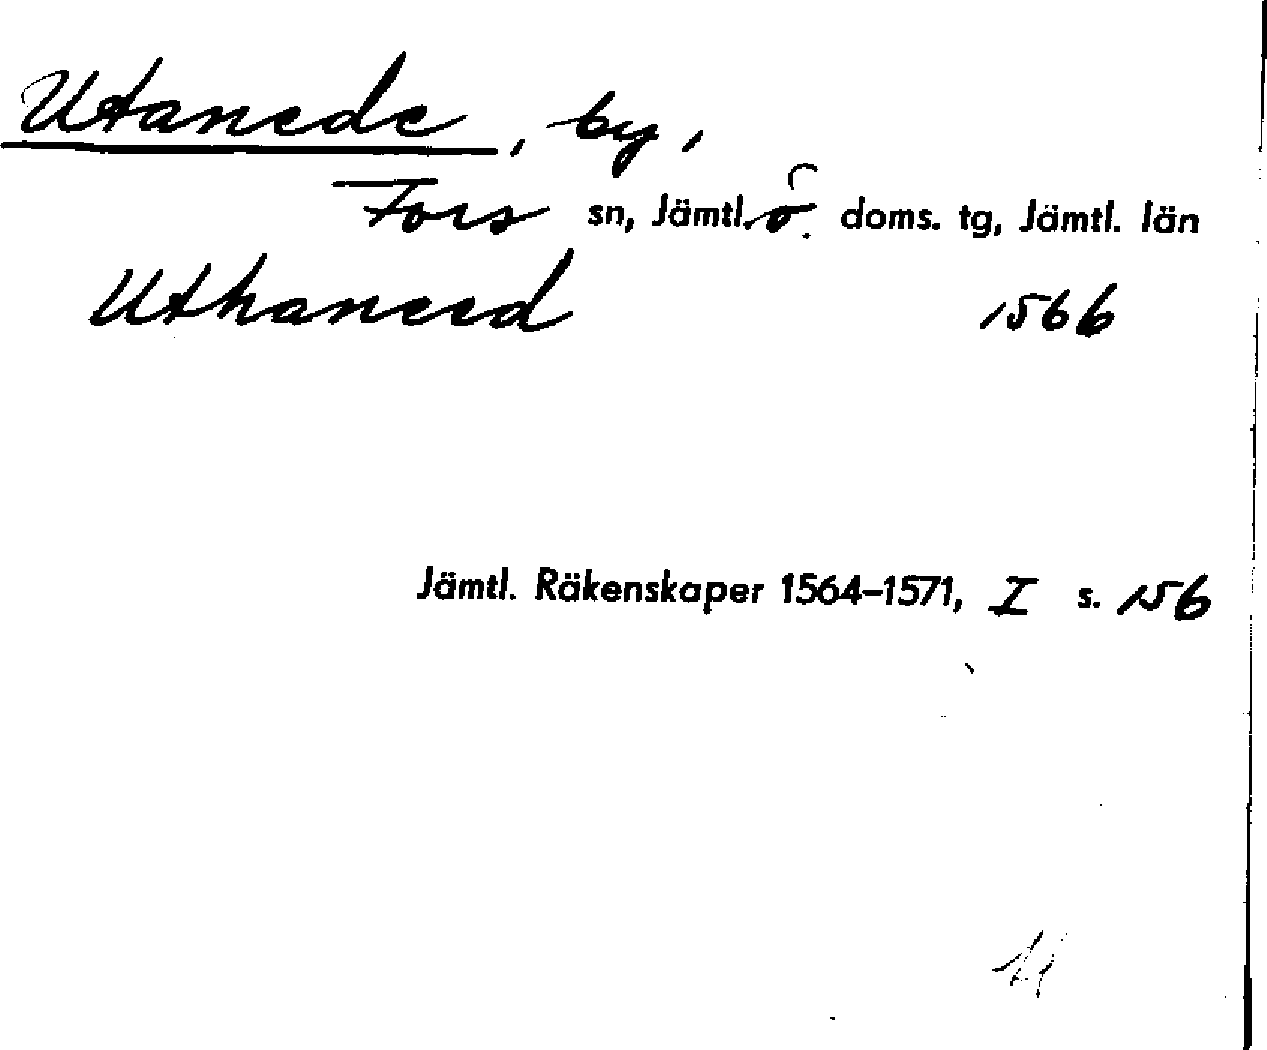 Utanede, by,
Fors sn, Jämtl. ö. doms. tg, Jämtl. län
Uthaneed 1566
Jämtl. Räkenskaper 1564-1571, I s. 156